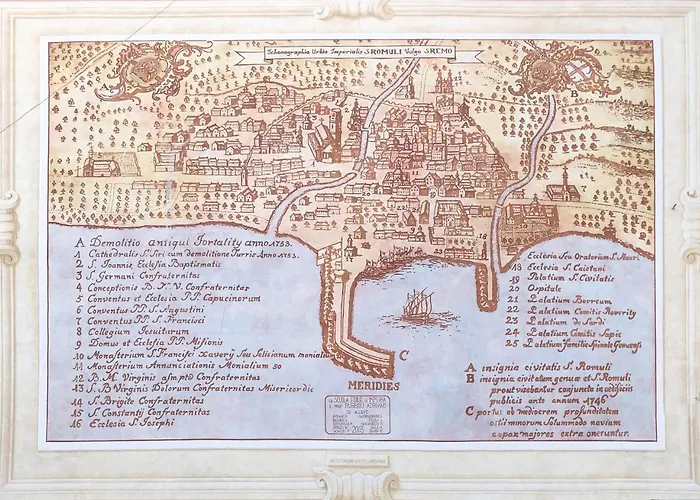 Ichonographia Urbis Imperialis S. ROMULI Vulgo S.REMO
B
A Demolitio antiqui Fortality anno 1753.
1 Cathedralis S. Siri cum demolitione Turris Anno 1753.
2 S. Joannis, Ecclesia Baptismatis
3 S. Germani Confraternitas
4 Conceptionis B. M. V. Confraternitas
5 Conventus et Ecclesia P.P. Capucinorum
6 Conventus P.P. S. Augustini
7 Conventus P.P. S. Francisci
8 Collegium Jesuitarum
9 Domus et Ecclesia P.P. Misionis
10 Monasterium S. Francisci Xavery Seu Selisianum monialium
11 Monasterium Annunciationis Monialium
12 B.M. Virginis Confraternitas
13 S.B Virginis Dolorum Confraternitas Misericordie
14 S. Brigite Confraternitas
15 S. Constantij Confraternitas
16 Ecclesia S. Josephi
Ecclesia Seu Oratorium S. Mauri
18 Ecclesia S. Caietani
19 Palatium S. Civitatis
20 Ospitale
21 Palatium Borreum
22 Palatium Comitis Roverity
23 Palatium de Sardi
24 Palatium Comitis Sapie
25 Palatium familie Spinole Genuensis
A insignia civitatis S. Romuli
B insignia civitatum genuae et S. Romuli
prout visebantur conjuncta in edificijs
publicis ante annum 1746
C portus ob mediocrem profunditatem
ostij minorum Solummodo navium
capax majores extra onerantur.
C
MERIDIES
LA SCUOLA EDILE DI IMPERIA
2015